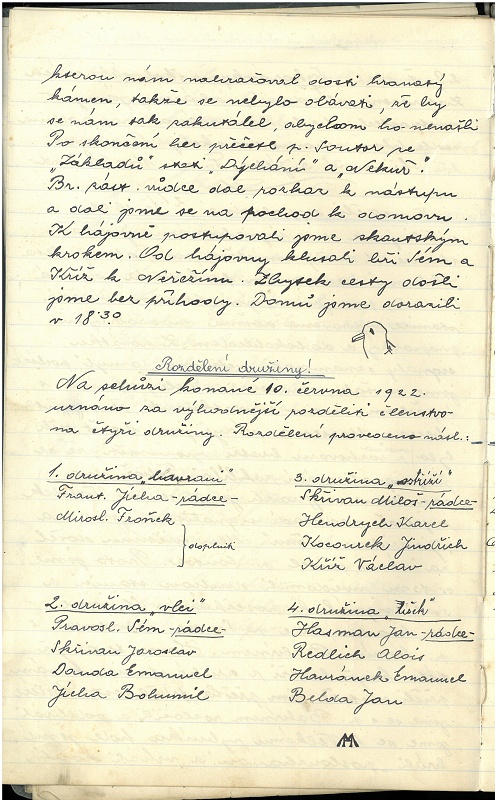 kterou nám nahražoval dosti hranatý
kámen, takže se nebylo obávati, že by
se nám tak zakutálel, abychom ho nenašli
Po skončení her přečetl p. Soutor ze
„Základů" stati „Dýchání" a „Nekuř".
Br. zást. vůdce dal rozkaz k nástupu
a dali jsme se na pochod k domovu.
K hájovně postupovali jsme skautským
krokem. Od hájovny klusali bři Sém a
Kříž k Neřežínu. Zbytek cesty došli
jsme bez příhody. Domů jsme dorazili
v 18·30
Rozdělení družiny!
Na schůzi konané 10. června 1922.
uznáno za výhodnější rozděliti členstvo
na čtyři družiny. Rozdělení provedeno násl.:
1. družina „havrani"
Frant. Jícha - rádce -
Mirosl. Froněk
doplniti
2. družina „vlci"
Pravosl. Sém - rádce -
Skřivan Jaroslav
Danda Emanuel
Jícha Bohumil
3. družina
Skřivan Miloš - rádce -
Hendrych Karel
Kocourek Jindřich
Kříž Václav
4. družina
Hasman Jan - rádce -
Redlich Alois
Havránek Emanuel
Belda Jan